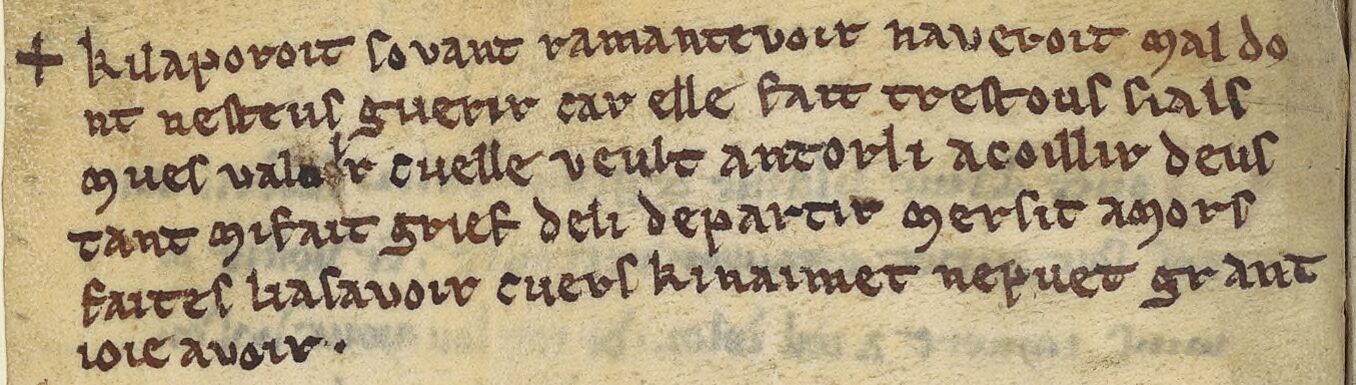 + kilaporoit sovant ramantevoir naveroit mal do
nt nesteus guerir car elle fait trestous sials
mues valoir cuelle veult antorli acoillir deus
tant mifait grief deli departir mersit amors
faites liasavoir cuers kinaimet nepuet grant
ioie avoir·